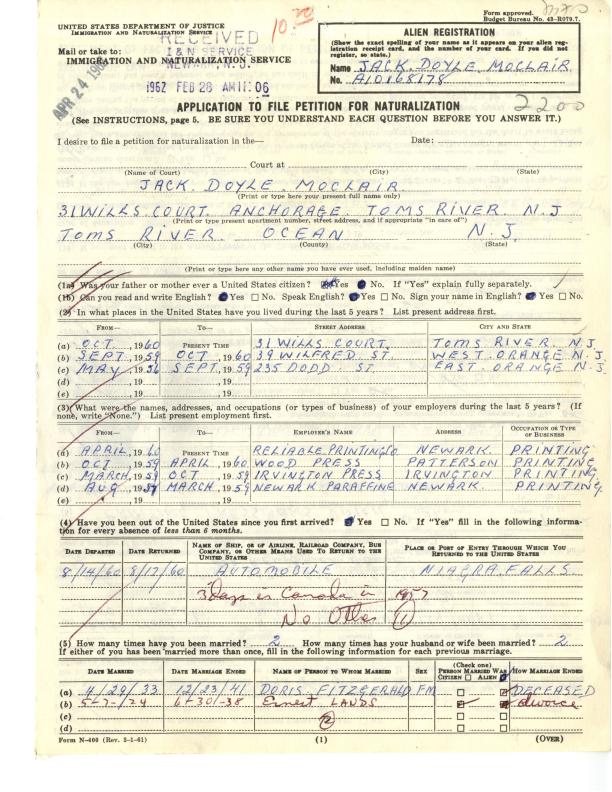 Form approved.
Budget Bureau No. 43-R079.7.
UNITED STATES DEPARTMENT OF JUSTICE
IMMIGRATION AND NATURALIZATION SERVICE
10.20
RECEIVED
I & N SERVICE
NEWARK, N. J.
1962 FEB 28 AM 11:06
APR 24 196
Mail or take to:
IMMIGRATION AND NATURALIZATION SERVICE
ALIEN REGISTRATION
(Show the exact spelling of your name as it appears on your alien registration receipt card, and the number of your card. If you did not register, so state.)
Name JACK. DOYLE. MOCLAIR
No. A10168178
2200
APPLICATION TO FILE PETITION FOR NATURALIZATION
(See INSTRUCTIONS, page 5. BE SURE YOU UNDERSTAND EACH QUESTION BEFORE YOU ANSWER IT.)
I desire to file a petition for naturalization in the— Date:
Court at
(Name of Court) (City) (State)
JACK. DOYLE. MOCLAIR.
(Print or type here your present full name only)
31 WILLS. COURT. ANCHORAGE. TOMS RIVER. N.J
(Print or type present apartment number, street address, and if appropriate "in care of")
TOMS RIVER. OCEAN N.J.
(City) (County) (State)
(Print or type here any other name you have ever used, including maiden name)
(1a) Was your father or mother ever a United States citizen? Yes No. If "Yes" explain fully separately.
(1b) Can you read and write English? Yes No. Speak English? Yes No. Sign your name in English? Yes No.
(2) In what places in the United States have you lived during the last 5 years? List present address first.
FROM— TO— STREET ADDRESS CITY AND STATE
(a) OCT. , 1960 PRESENT TIME 31 WILLS. COURT. TOMS RIVER. N.J.
(b) SEPT. , 1959 OCT , 1960 39 WILFRED. ST. WEST. ORANGE N.J.
(c) MAY , 1956 SEPT. , 1959 235 DODD. ST. EAST. ORANGE N.J.
(d) , 19 , 19
(e) , 19 , 19
(3) What were the names, addresses, and occupations (or types of business) of your employers during the last 5 years? (If
none, write "None.") List present employment first.
FROM— TO— EMPLOYER'S NAME ADDRESS OCCUPATION OR TYPE OF BUSINESS
(a) APRIL. , 1960 PRESENT TIME RELIABLE.PRINTING Co NEWARK. PRINTING
(b) OCT. , 1959 APRIL. , 1960 WOOD PRESS PATTERSON PRINTING
(c) MARCH , 1959 OCT , 1959 IRVINGTON PRESS IRVINGTON PRINTING
(d) AUG. , 19 MARCH , 1959 NEWARK PARAFFINE NEWARK. PRINTING.
(e) , 19 , 19
(4) Have you been out of the United States since you first arrived? Yes No. If "Yes" fill in the following informa-
tion for every absence of less than 6 months.
DATE DEPARTED DATE RETURNED NAME OF SHIP, OR OF AIRLINE, RAILROAD COMPANY, BUS COMPANY, OR OTHER MEANS USED TO RETURN TO THE UNITED STATES PLACE OR PORT OF ENTRY THROUGH WHICH YOU RETURNED TO THE UNITED STATES
8/14/60 8/17/60 AUTOMOBILE NIAGRA. FALLS.
3 days in Canada in 1957
No Other (1)
(5) How many times have you been married? 2 How many times has your husband or wife been married? 2
If either of you has been married more than once, fill in the following information for each previous marriage.
DATE MARRIED DATE MARRIAGE ENDED NAME OF PERSON TO WHOM MARRIED SEX (Check one) PERSON MARRIED WAS CITIZEN ALIEN HOW MARRIAGE ENDED
(a) 4/29/33 12/23/41 DORIS. FITZGERALD. FM DECEASED
(b) 5-7-24 6-30-38 Ernest LANDS divorce
(c) (2)
(d)
Form N-400 (Rev. 5-1-61) (1) (OVER)